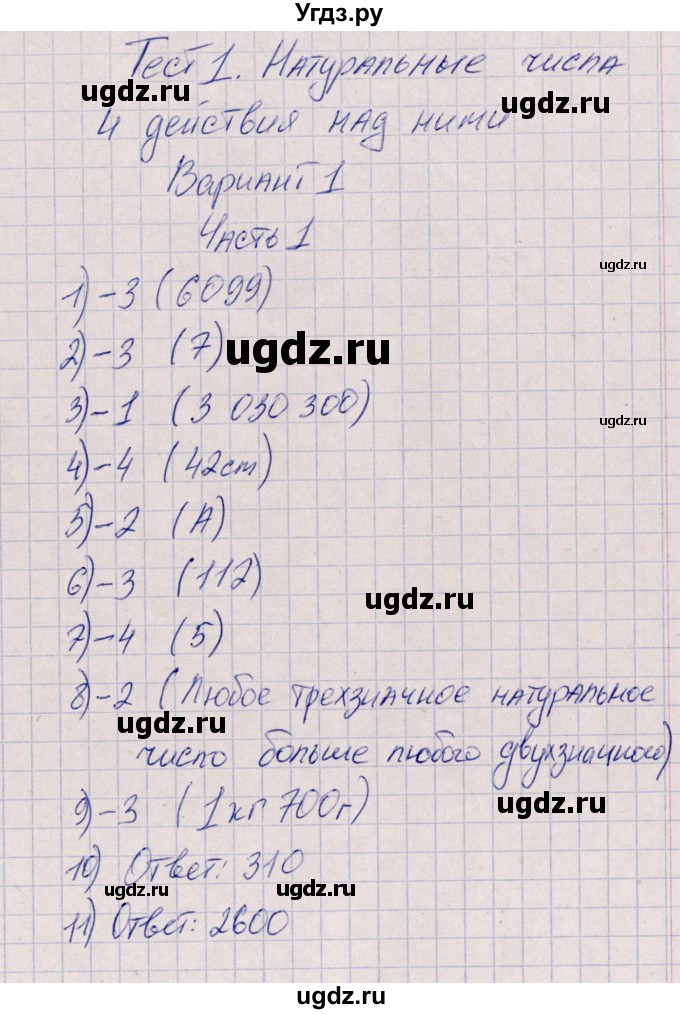 Угдз.ру
Тест 1. Натуральные числа
ugdz.ru ugdz.ru
и действия над ними
Вариант 1
Часть 1
ugdz.ru
1) - 3 (6099)
2) - 3 (7) ugdz.ru
3) - 1 (3 030 300)
ugdz.ru
4) - 4 (42 cm)
5) - 2 (А)
6) - 3 (112)
ugdz.ru
7) - 4 (5)
8) - 2 (Любое трехзначное натуральное
ugdz.ru
число больше любого двухзначного)
9) - 3 (1 кг 700 г) ugdz.ru
10) Ответ: 310
ugdz.ru ugdz.ru
11) Ответ: 2600
ugdz.ru
ugdz.ru